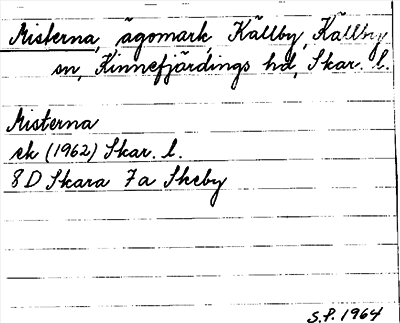 Misterna, ägomark Källby, Källby
sn, Kinnefjärdings hd, Skar. l.
Misterna
ek (1962) Skar. l.
8 D Skara 7a Skeby
S.P. 1964